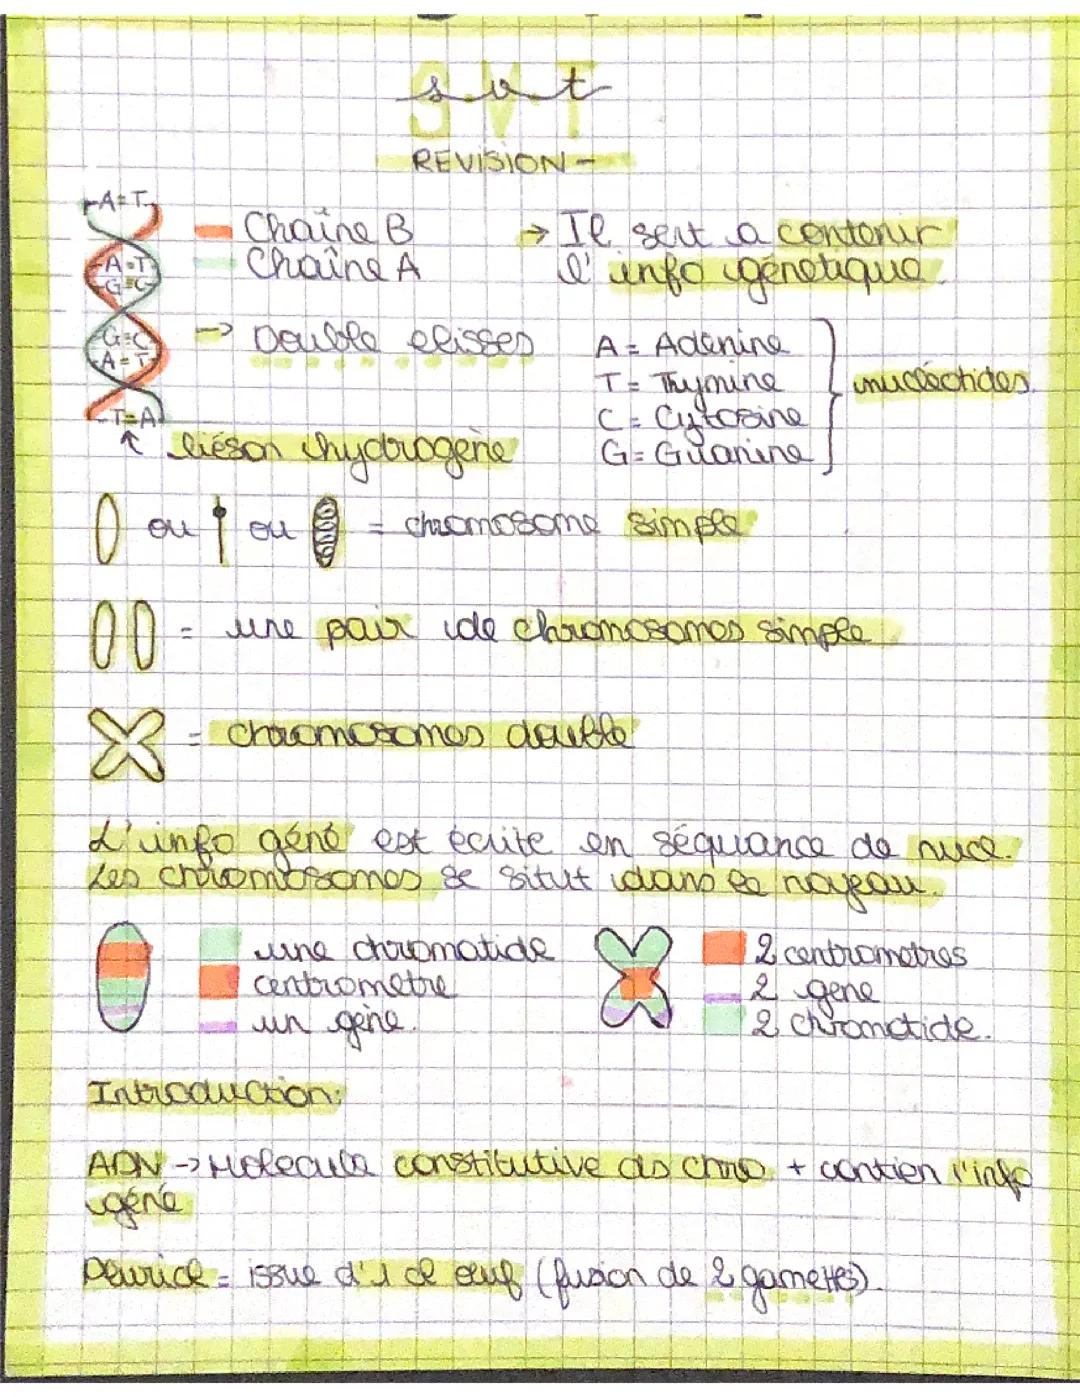 svt
SVT
REVISION -
A=T
Chaîne B
Chaîne A
→ Il sert a contenir
l'info génétique.
A=T
G≡C
G≡C
A=T
T=A
→ Double elisses
A = Adenine
T = Thymine
C = Cytosine
G = Guanine
nucléotides.
↑ liéson hydrogène
ou ou = chromosome simple
= une pair de chromosomes simple
= chromosomes double
L'info géné est écrite en séquance de nucl.
Les chromosomes se situt dans le noyeau.
une chromatide
centromètre
un gène.
2 centromètres
2 gene
2 chromatide.
Introduction:
ADN → Molecule constitutive ds chro + contien l'info
géné
Pluricel = issue d'1 cel œuf (fusion de 2 gamettes).